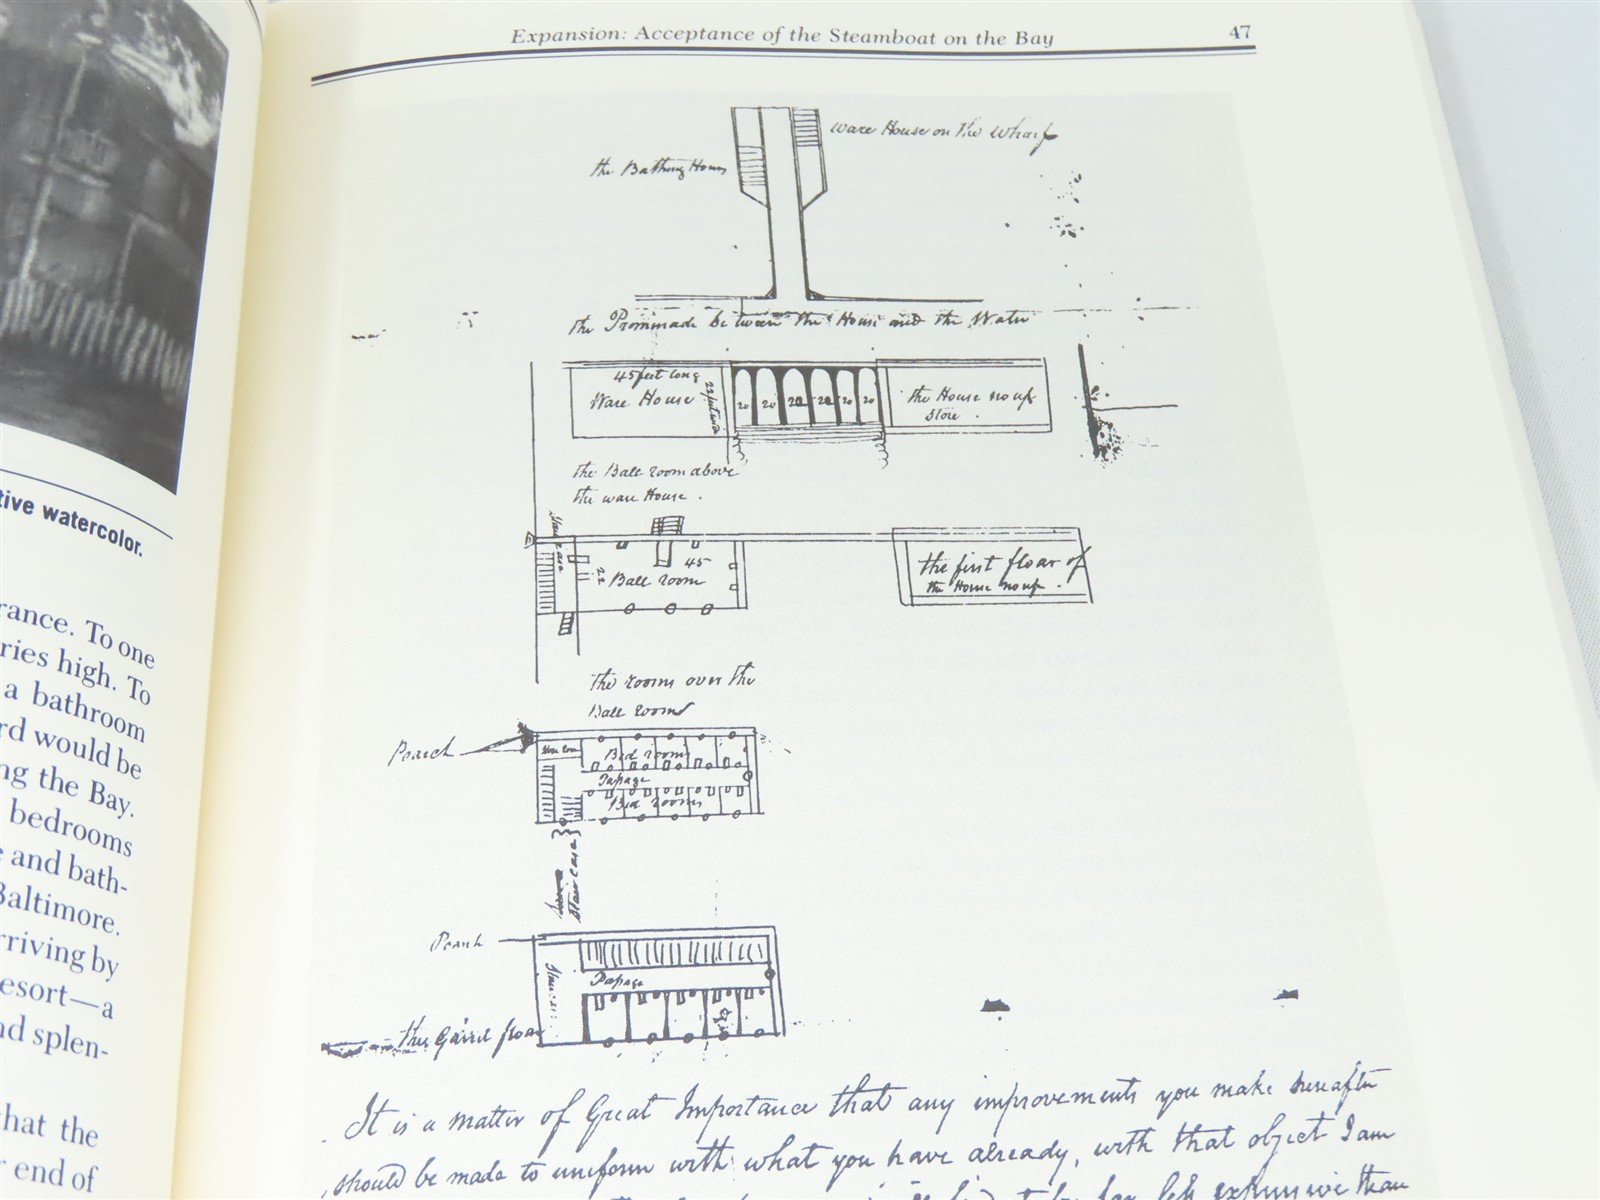 Expansion: Acceptance of the Steamboat on the Bay 47
Ware House on the wharf
the Bathing House
the Prommade between the House and the Water
45 feet long
Ware House
22 feet wide
20 20 20 20 20 20
the House no up
Store .
the Ball room above
the ware House .
Stair case
22
45
Ball room
the first floar of
the House no up .
the rooms over the
Ball rooms
Poarch
Bed rooms
Pasage
Bed rooms
Stair case
Poarch
Pasage
the Garret floar
It is a matter of Great Importance that any improvements you make hereafter
should be made to uniform with what you have already, with that object I am
far less expensive than
tive watercolor.
rance. To one
ries high. To
a bathroom
rd would be
ng the Bay.
bedrooms
e and bath-
Baltimore.
rriving by
esort—a
nd splen-
hat the
r end of